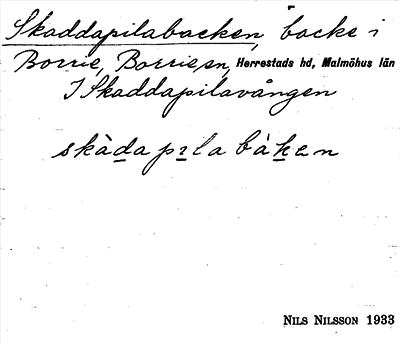 Skaddapilabacken, backe i
Borrie, Borrie sn, Herrestads hd, Malmöhus län
I Skaddapilavången
skàdapıla bàken
NILS NILSSON 1933